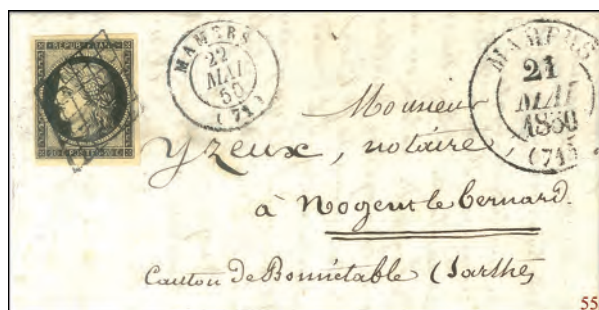 REPUB. FRANC.
20 C POSTES 20 C
MAMERS
22
MAI
50
(71)
MAMERS
21
MAI
1850
(71)
Monsieur
Yzeux, notaire,
à Nogent le Bernard.
Canton de Bonnétable (Sarthe)
55